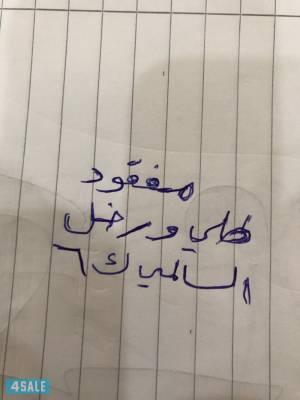 مفقود
طلي ورخل
السالمي ك٦
4SALE